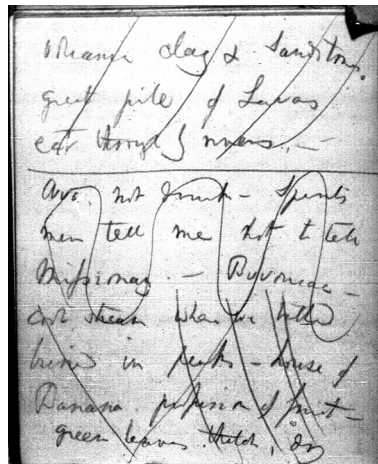 clay & Sandstone.
great pile of Lavas
cut through by rivers. —
Ava. not drunk — Spirits
men tell me not to tell
Missionary. — Bivouac —
cool stream where we bathed
in peaks — house of
Banana. profusion of fruit —
green leaves. thatch,